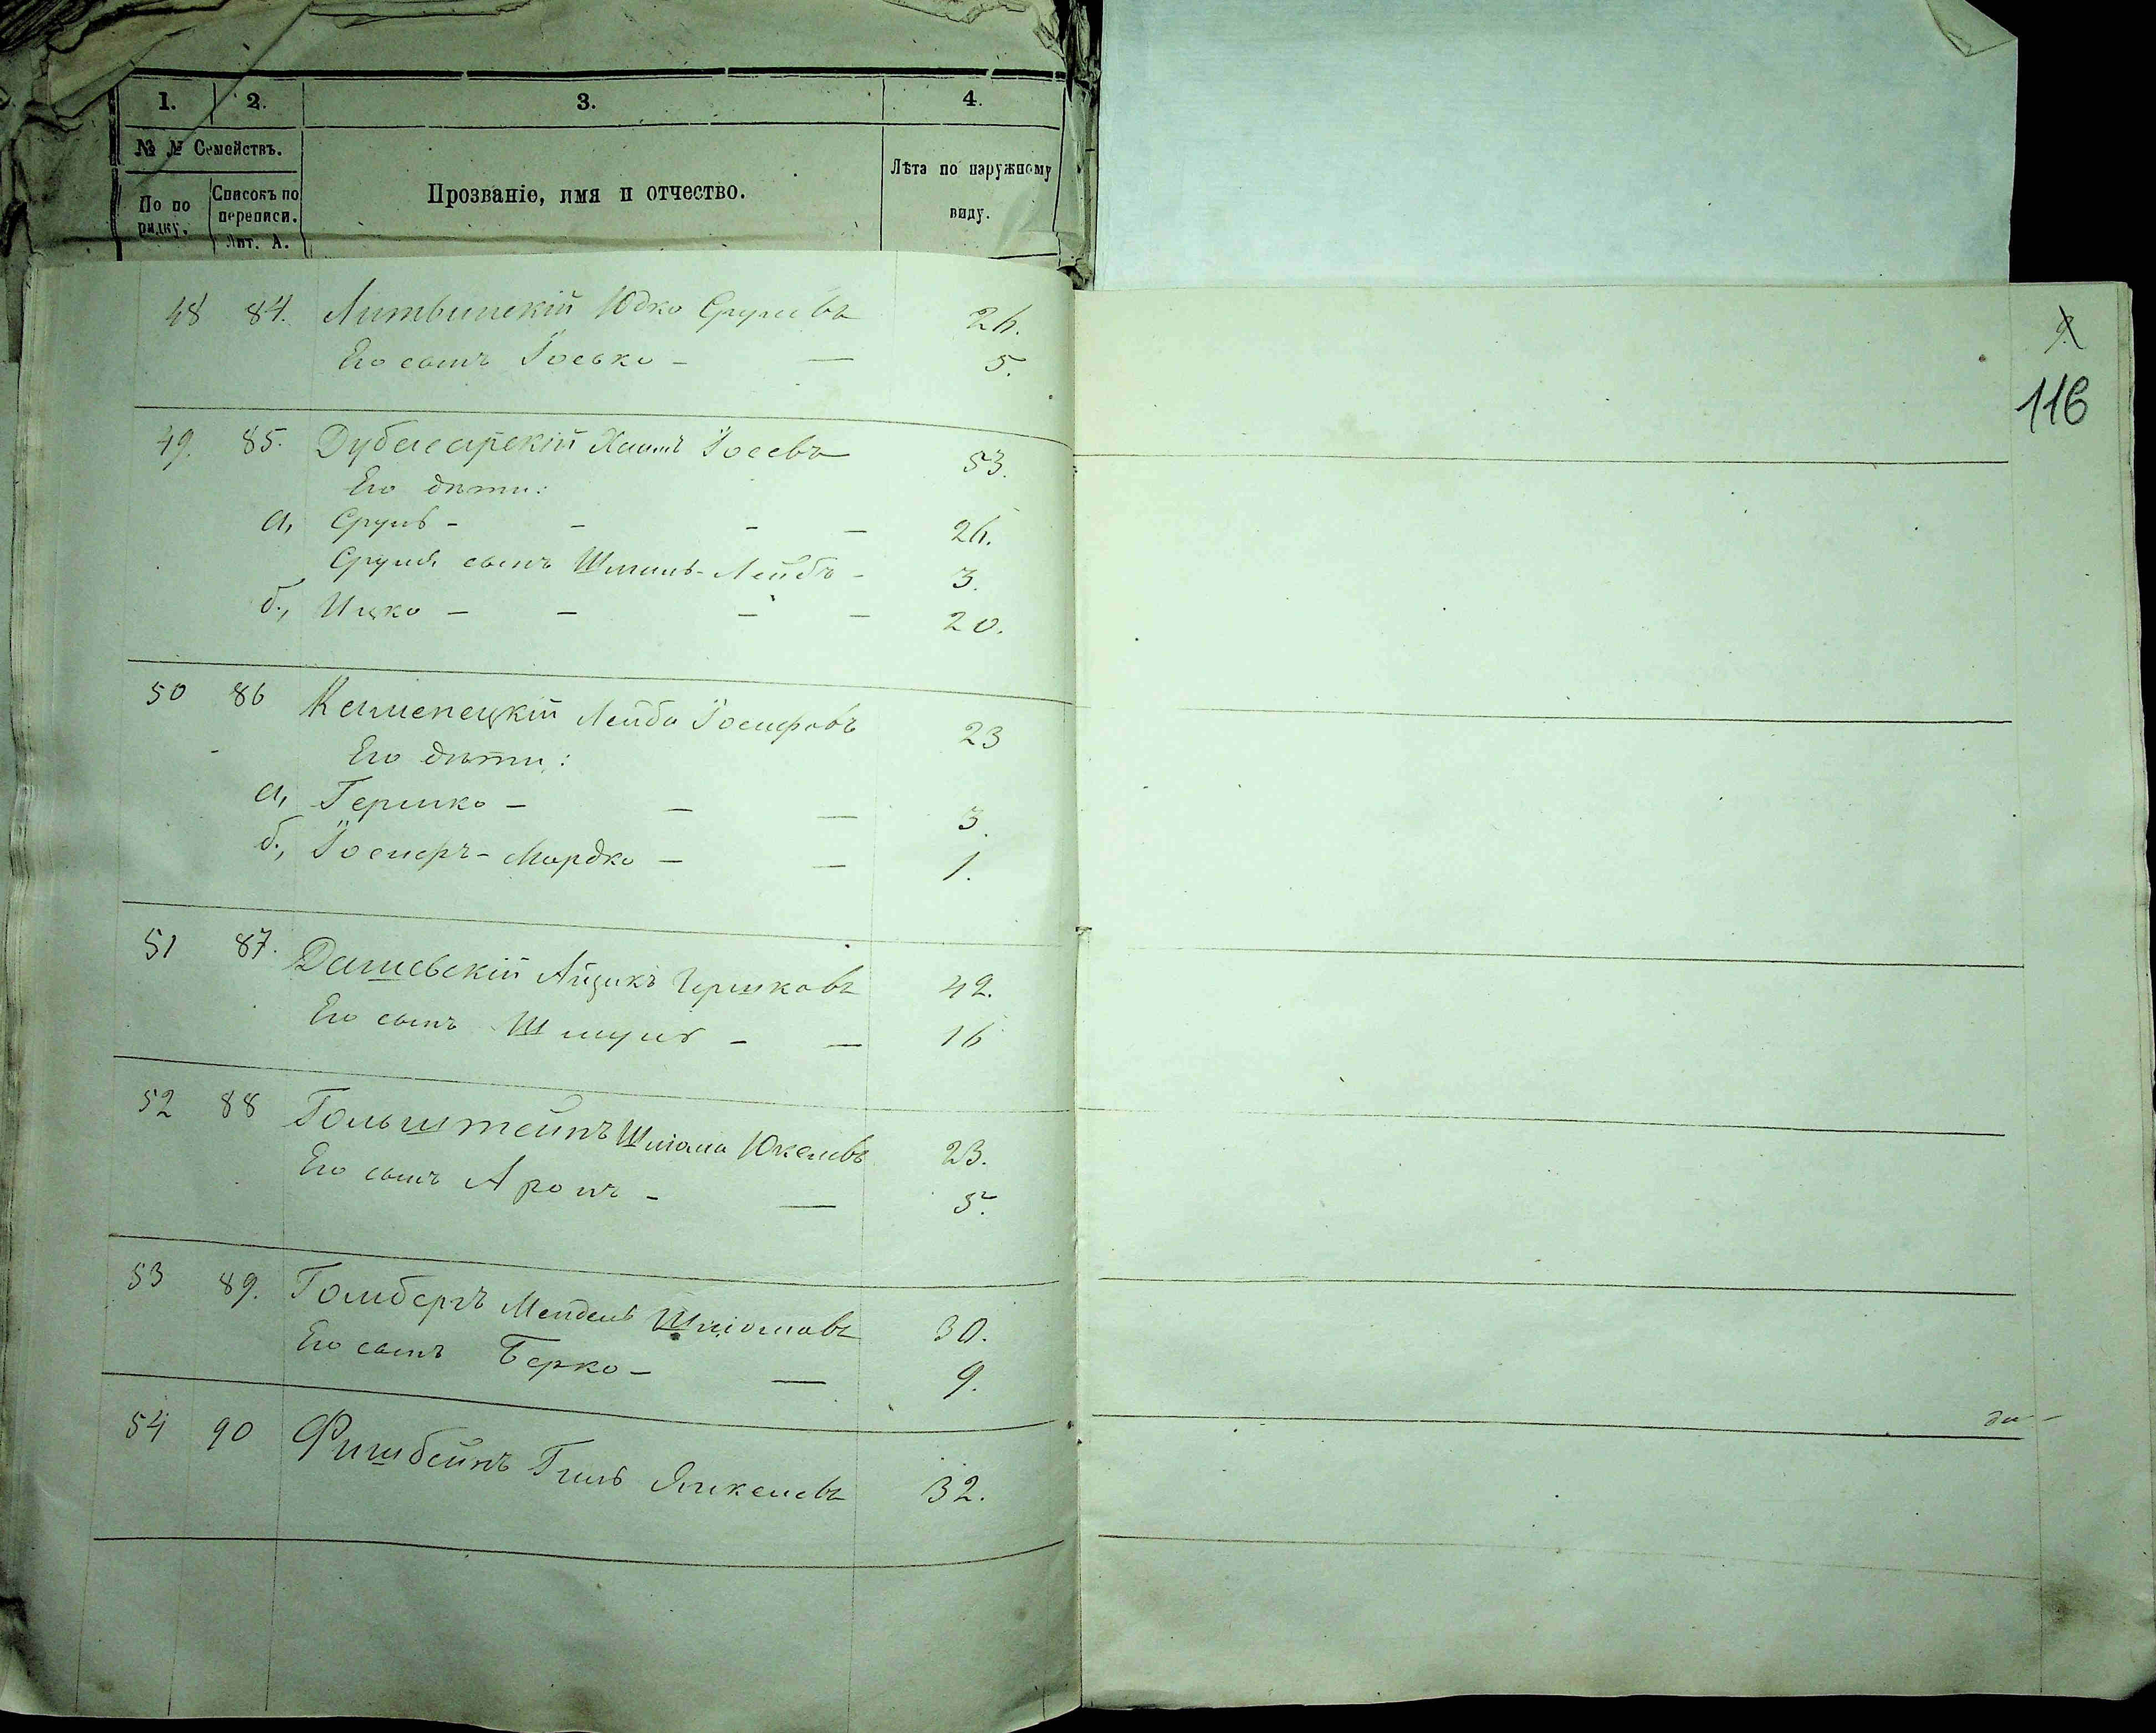 1. 2. 3. 4.
№ № Семействъ.
По по рядку.
Списокъ по переписи. Лит. А.
Прозваніе, имя и отчество.
Лѣта по наружному виду.
48 84. Литвинскій Юдко Срулевъ 26.
Его сынъ Іосько - — 5.
49. 85. Дубасарскій Хаимъ Іосевъ 53.
Его дѣти:
а, Сруль - - - — 26.
Сруля сынъ Шмиль-Лейбъ - 3.
б., Ицко - - - - 20.
50 86 Каменецкій Лейба Іосифовъ 23
Его дѣти:
а, Гершко - - — 3.
б., Іосифъ-Мордко - — 1.
51 87. Дашевскій Айзикъ Гершковъ 42.
Его сынъ Шмуль - — 16
52 88 Гольштейнъ Шліома Юкелевъ 23.
Его сынъ Аронъ - — 5.
53 89. Гомбергъ Мендель Шліомовъ 30.
Его сынъ Берко - — 9.
54 90 Фишбейнъ Гиль Янкелевъ 32.
116